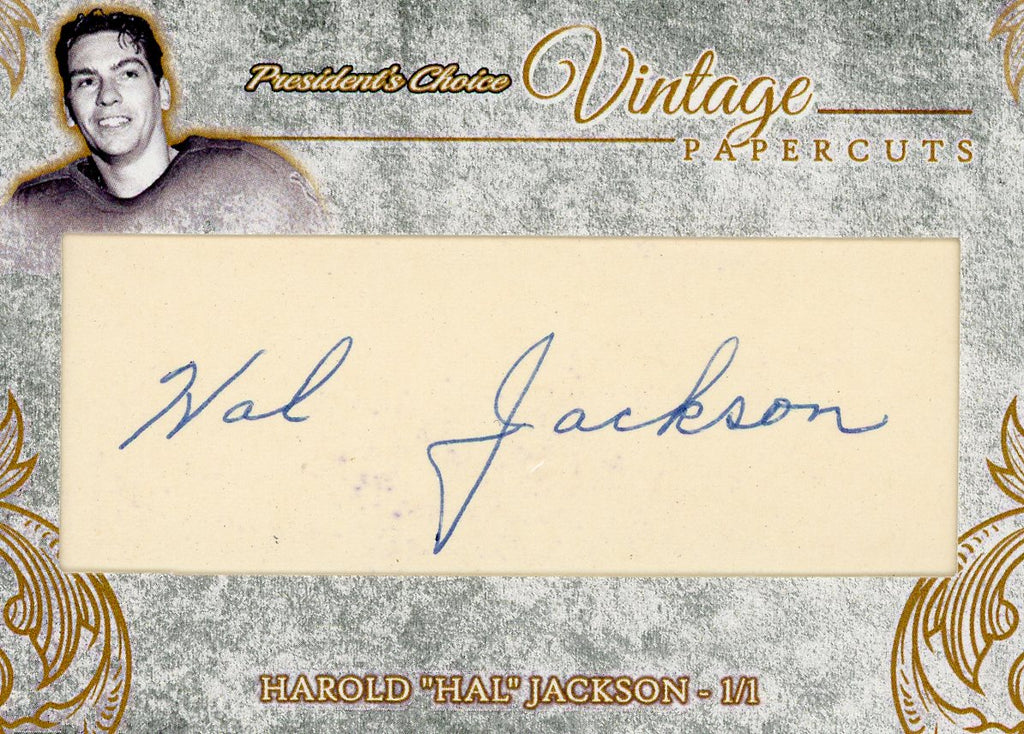 President's Choice Vintage
PAPERCUTS
Hal Jackson
HAROLD "HAL" JACKSON - 1/1